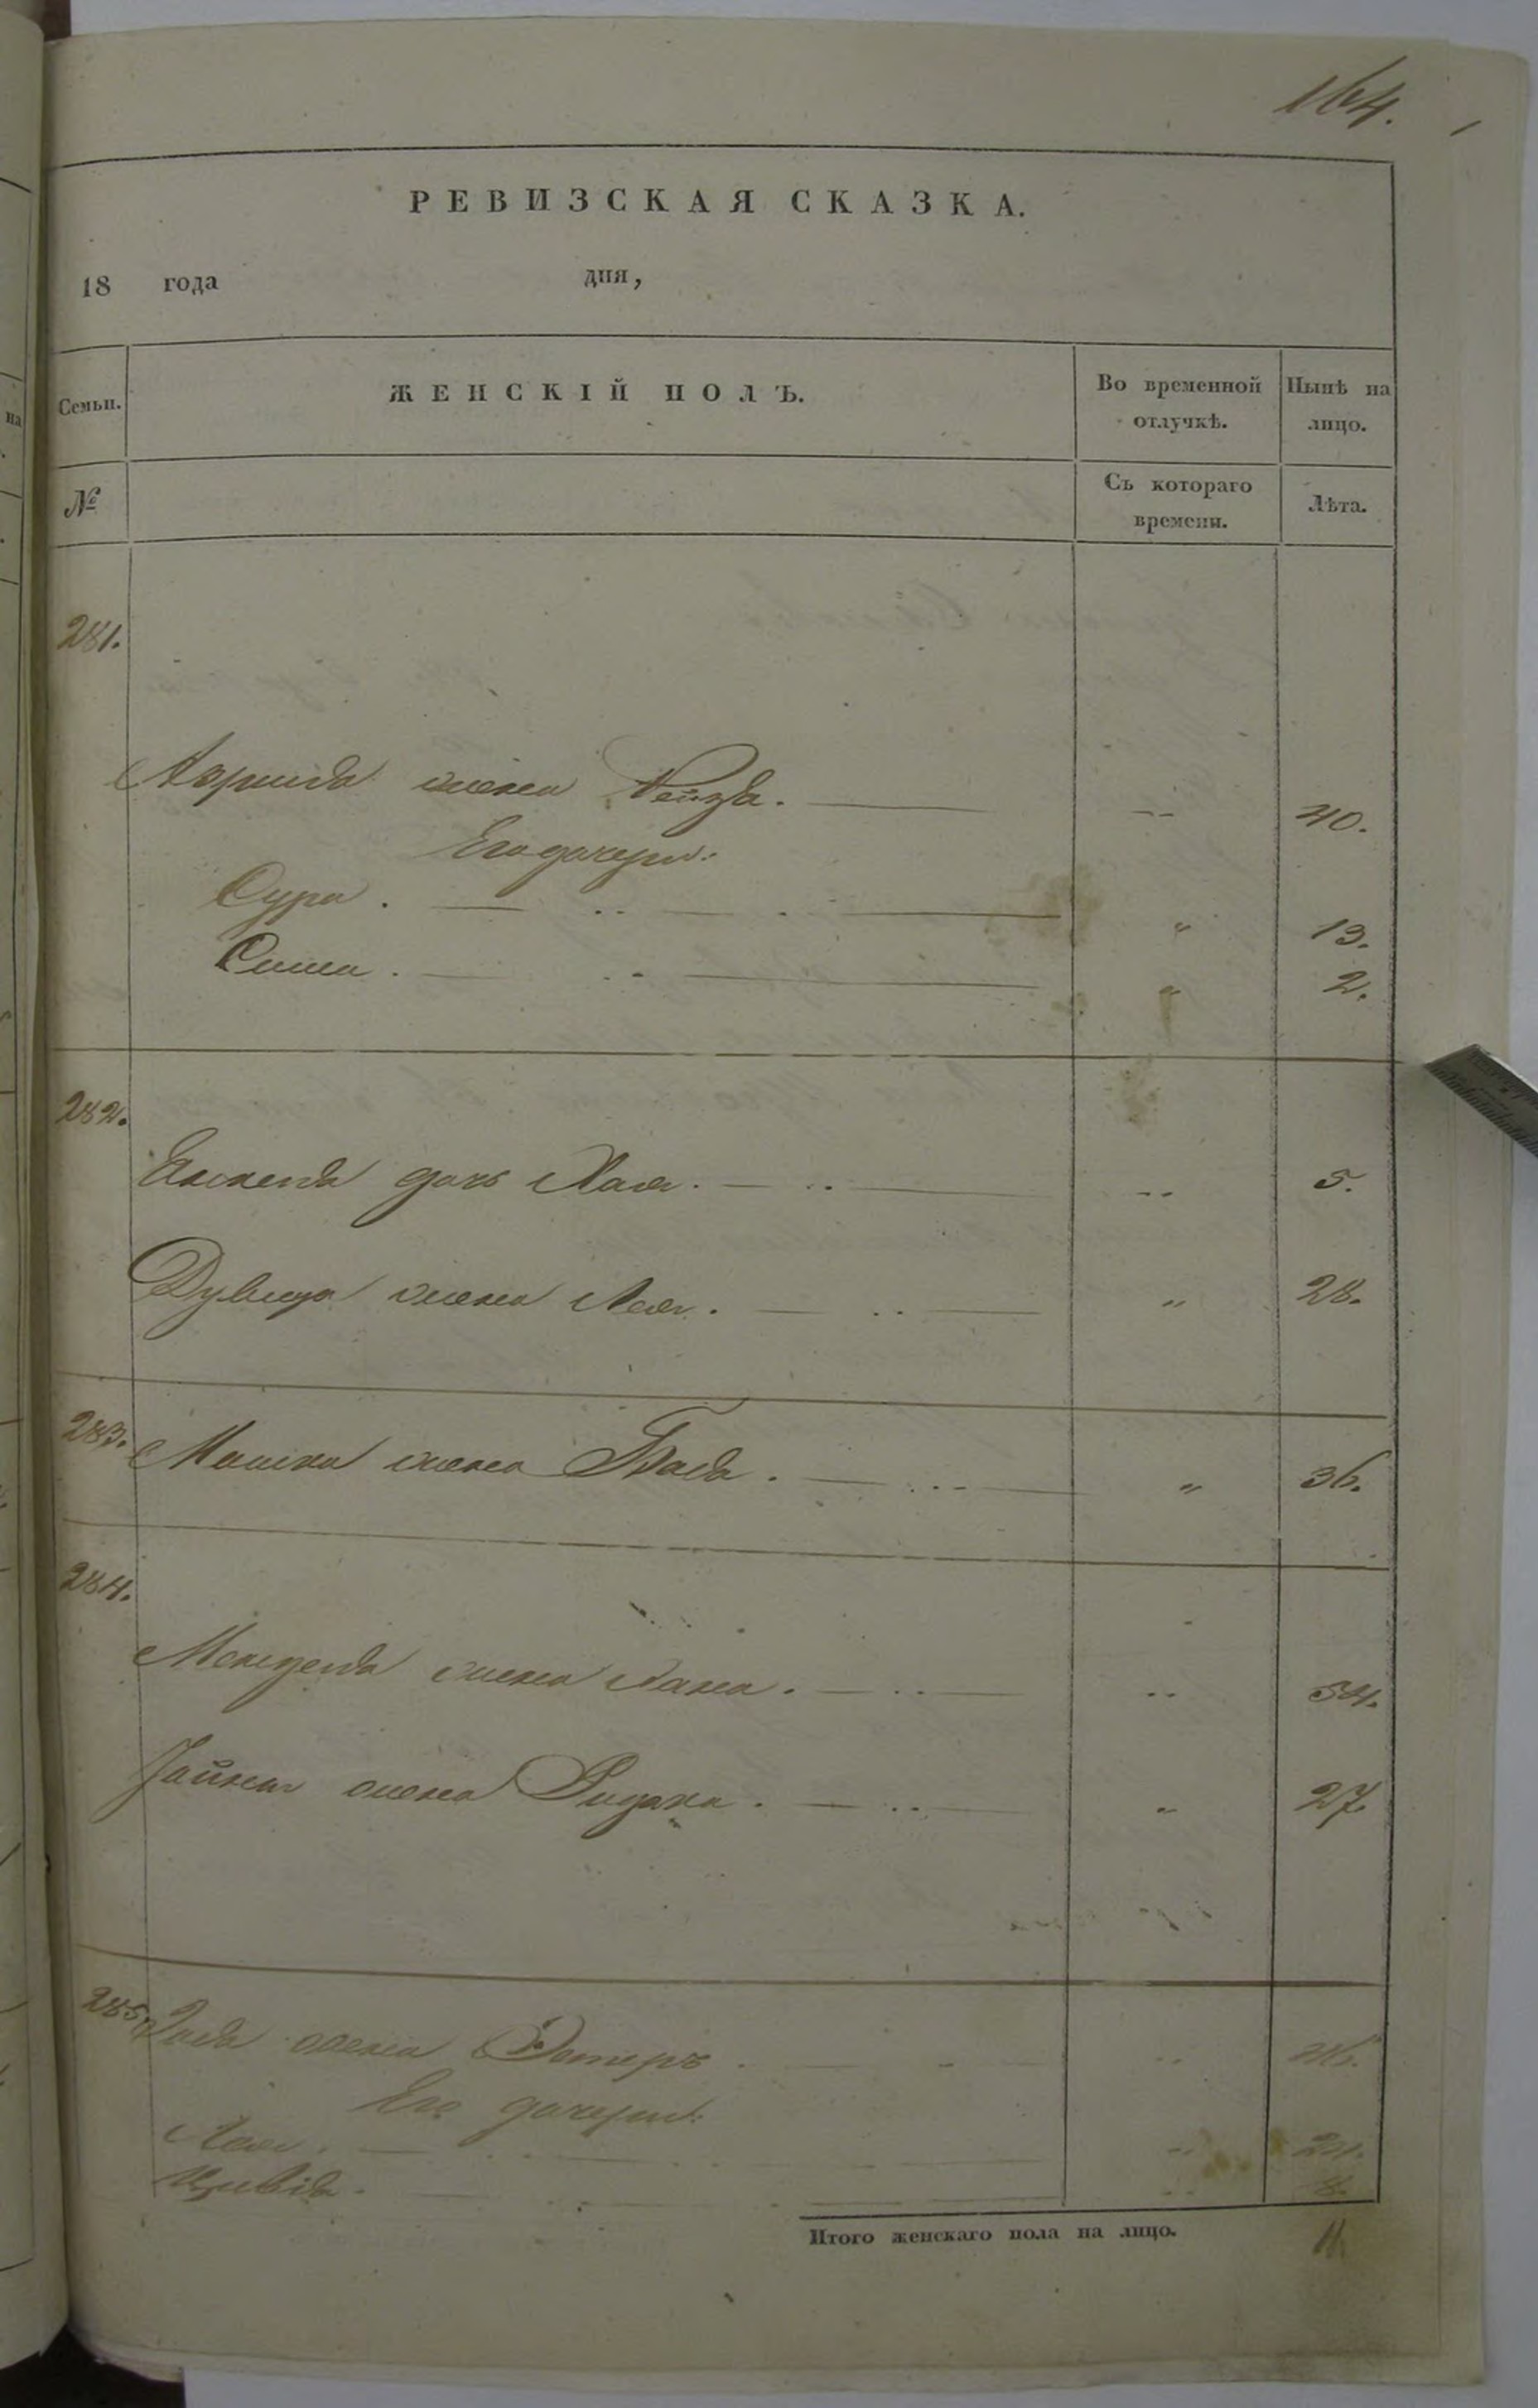 164.
РЕВИЗСКАЯ СКАЗКА.
18 года дня,
Семьи. ЖЕНСКІЙ ПОЛЪ. Во временной отлучкѣ. Нынѣ на лицо.
№ Съ котораго времени. Лѣта.
281.
жена Рейза. 40.
Его дочери:
Сура. " 13.
Сима. " 2.
282.
дочь Хая. 5.
жена Лея. " 28.
283. Мошка жена Бася. " 36.
284.
Менделя жена Хана. 54.
жена " 27.
285. жена Эстеръ 46.
Его дочери:
Лея. 24.
Цивія. 8.
Итого женскаго пола на лицо. 11.